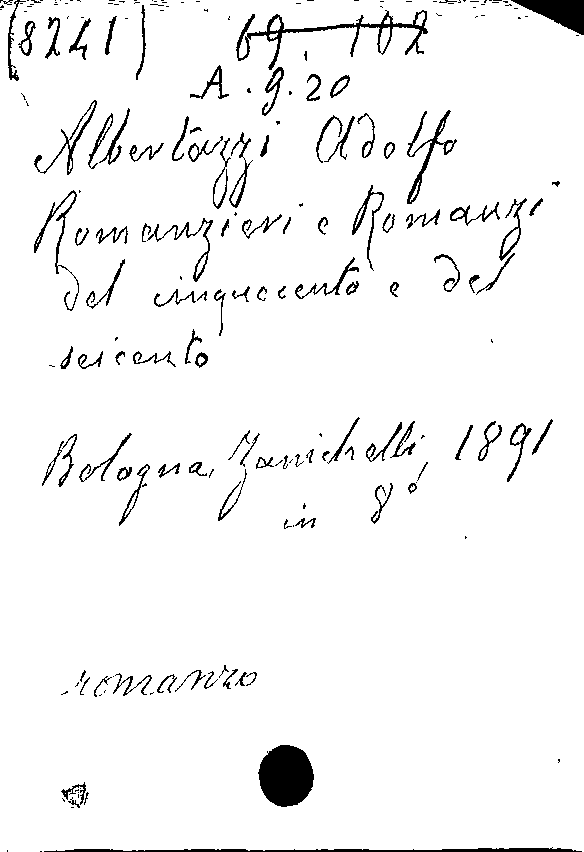 (8241) 69.102
A.9.20
Albertazzi Adolfo
Romanzieri e Romanzi
del cinquecento e del
seicento
Bologna, Zanichelli, 1891
in 8°
romanzo